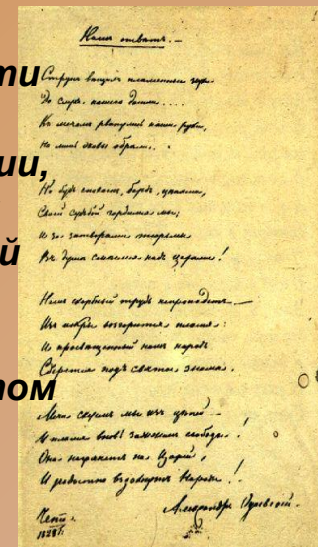 ти
ии,
й
том
Струнъ вещихъ пламенные звуки
До слуха нашего дошли....
Къ мечамъ рванулись наши руки,
Но лишь оковы обрѣли..
Но будь спокоенъ, бардъ, цѣпями,
Своей судьбой гордимся мы;
И за затворами тюрьмы
Въ душѣ смѣемся надъ Царями!
Нашъ скорбный трудъ не пропадетъ —
Изъ искры возгорится пламя:
И просвѣщенный нашъ народъ
Сберется подъ святое знамя.
Мечи скуемъ мы изъ цѣпей
И пламя вновь зажжемъ свободы!
Она нагрянетъ на Царей,
И радостно вздохнутъ Народы!
Александръ
1828 г.